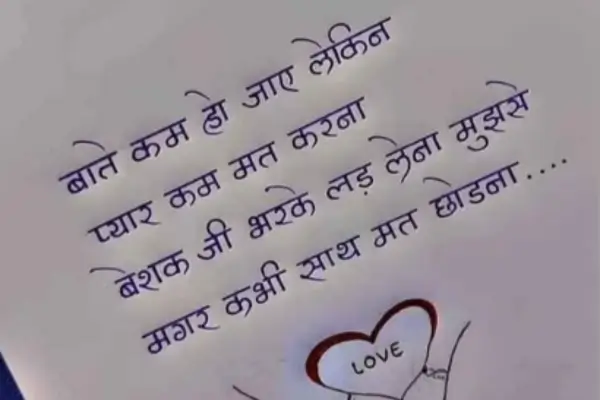 बाते कम हो जाए लेकिन
प्यार कम मत करना
बेशक जी भरके लड़ लेना मुझसे
मगर कभी साथ मत छोडना....
LOVE